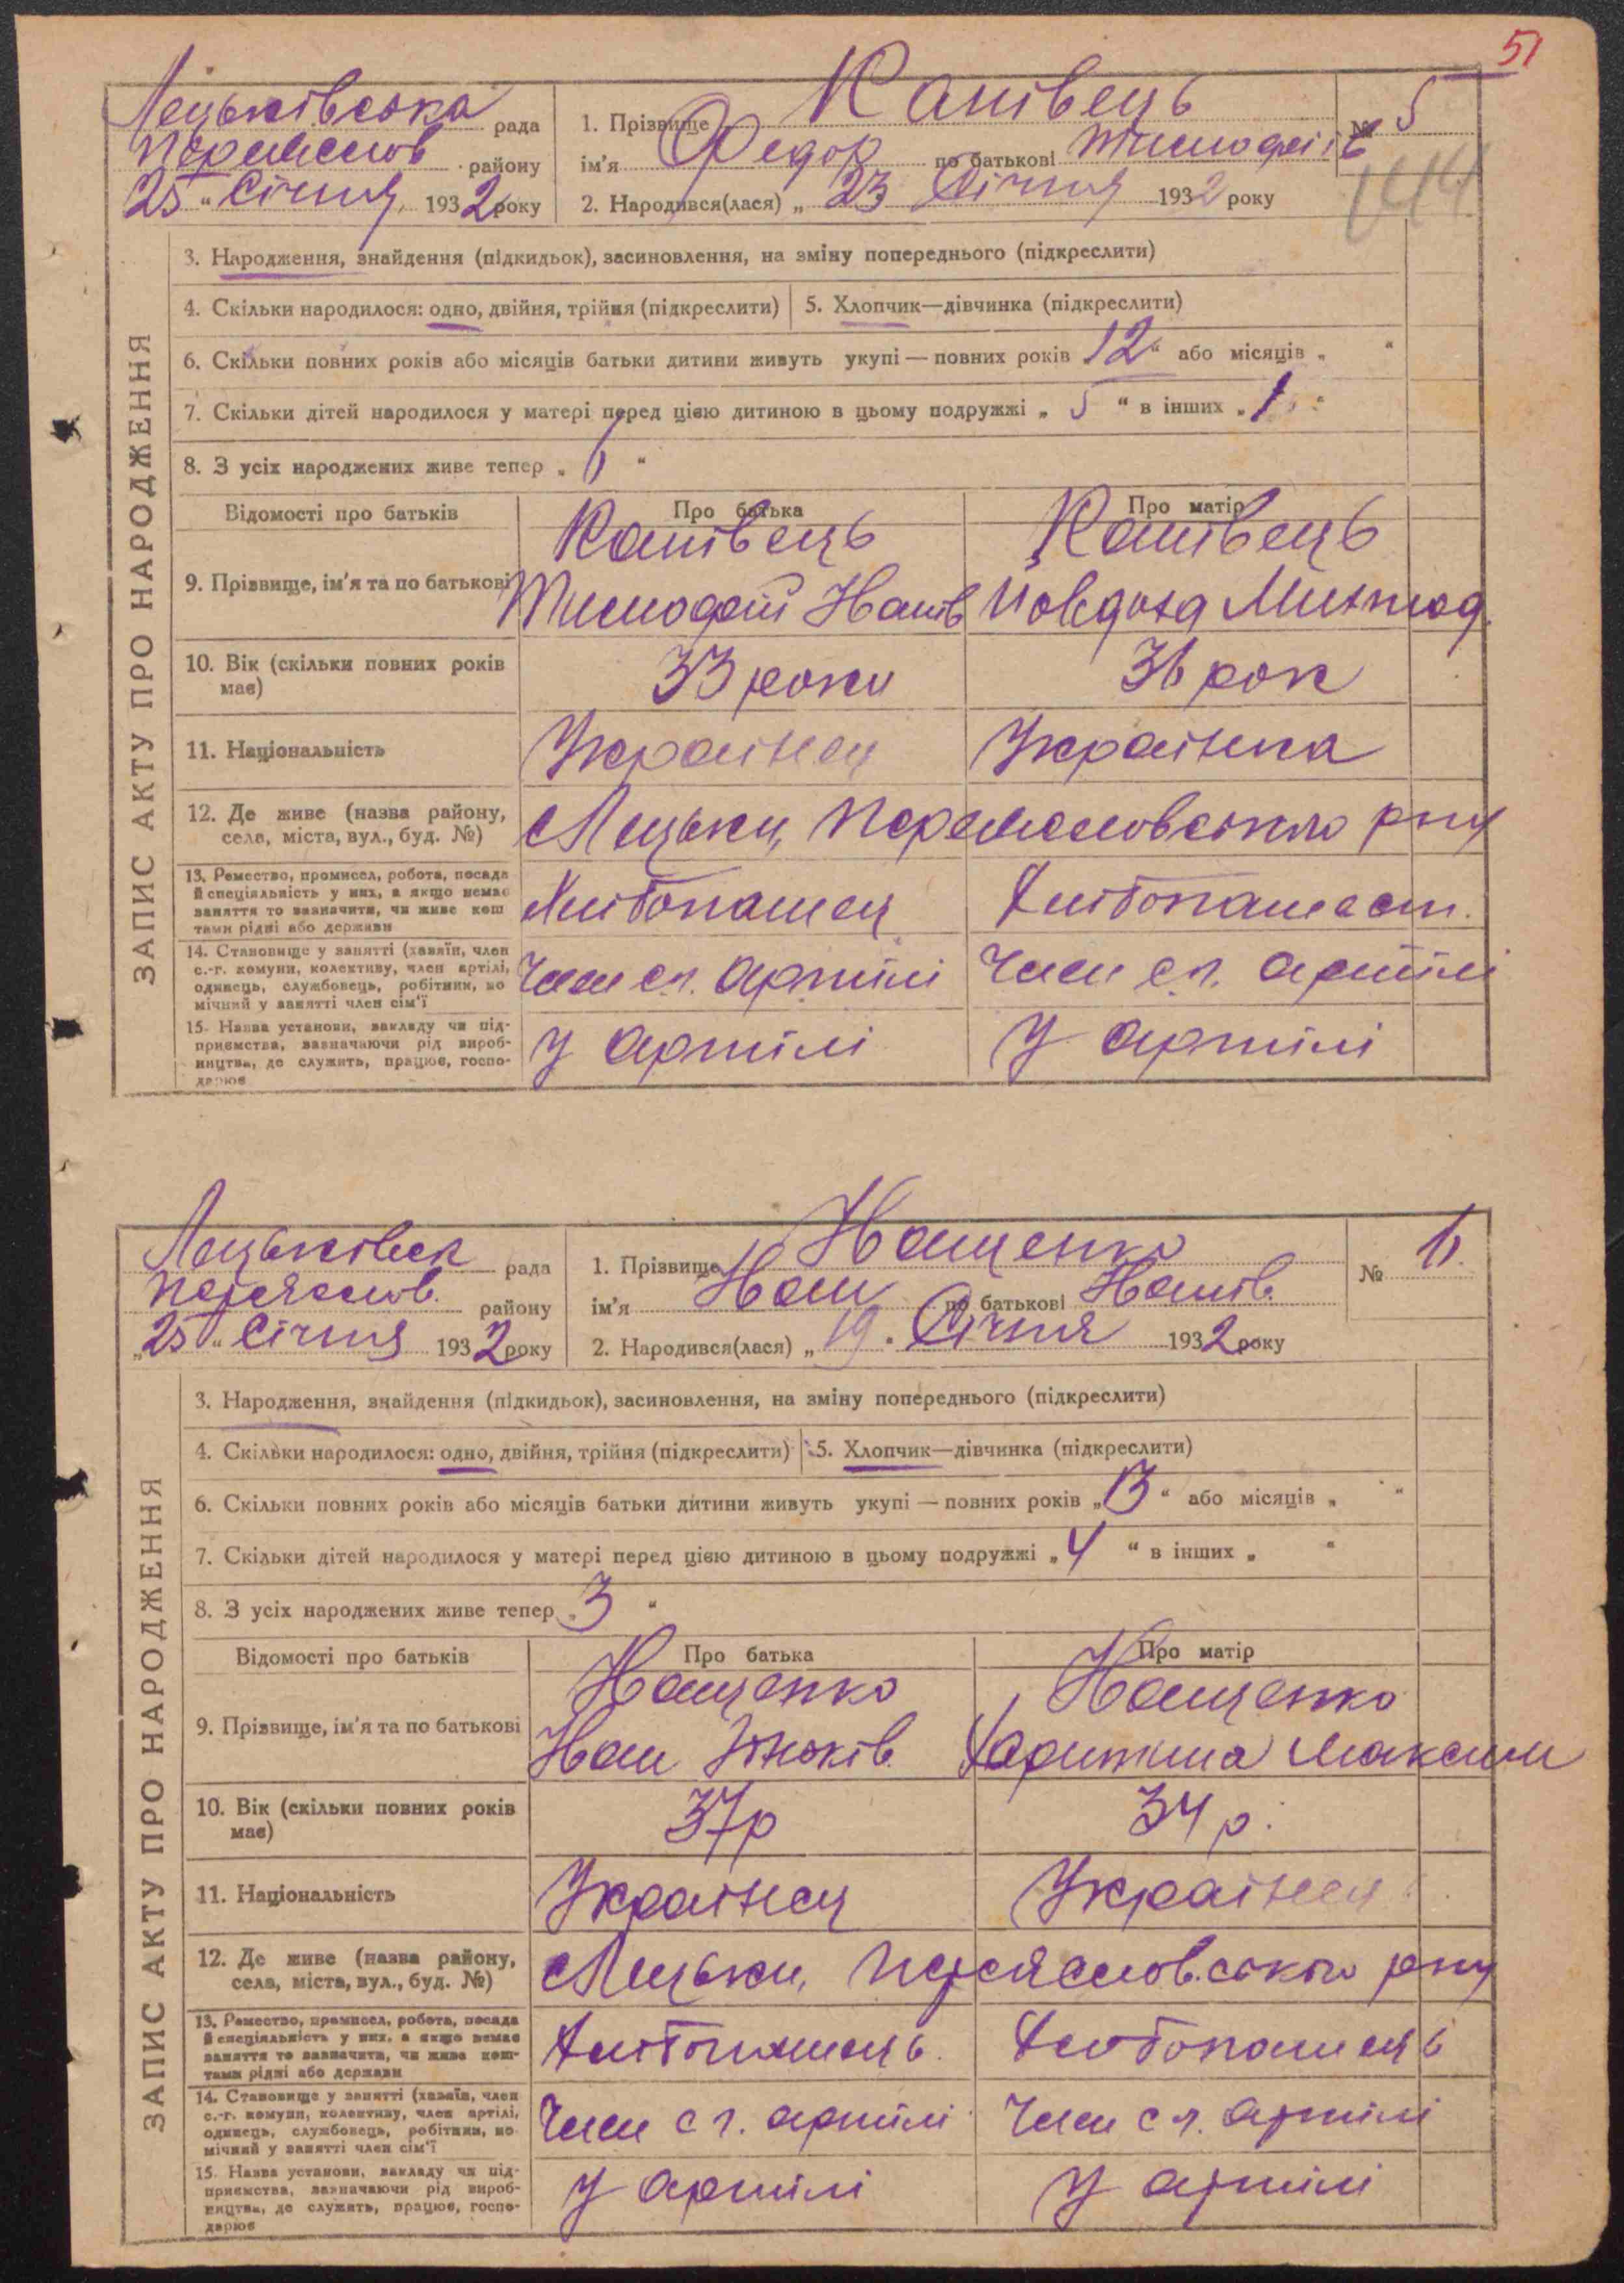 51
Лецьківська рада
Переяслов району
25 "Січня 1932 року
1. Прізвище Канівець
ім'я Федор по батькові Тимофіїв
2. Народився(лася) „ 23 Січня 1932 року
№ 5
144
ЗАПИС АКТУ ПРО НАРОДЖЕННЯ
3. Народження, знайдення (підкидьок), засиновлення, на зміну попереднього (підкреслити)
4. Скільки народилося: одно, двійня, трійня (підкреслити) 5. Хлопчик—дівчинка (підкреслити)
6. Скільки повних років або місяців батьки дитини живуть укупі — повних років 12 “ або місяців „ “
7. Скільки дітей народилося у матері перед цією дитиною в цьому подружжі „ 5 “ в інших „ 1 “
8. З усіх народжених живе тепер „ 6 “
Відомості про батьків Про батька Про матір
Канівець Канівець
9. Прізвище, ім'я та по батькові Тимофій Нанів Мокрод.
10. Вік (скільки повних років має) 33 роки 36 рок
11. Національність Українец Українка
12. Де живе (назва району, села, міста, вул., буд. №) Лецьки, Переясловського рну
13. Ремество, промисел, робота, посада
й спеціяльність у них, а якщо немає
заняття то зазначити, чи живе кош
тами рідні або держави
Хлібопашец Хлібопашест.
14. Становище у занятті (хазяїн, член
с.-г. комуни, колективу, член артілі,
одинець, службовець, робітник, по
мічний у занятті член сім'ї
Член сг. артілі Член сг. артілі
15. Назва установи, закладу чи під-
приємства, зазначаючи рід вироб-
ництва, де служить, працює, госпо-
дарює
У артілі У артілі
Лецьківск рада
Переяслов. району
„25" Січня 1932 року
1. Прізвище Нащенко
ім'я по батькові
2. Народився(лася) „ 19. Січня 1932 року
№ 6.
ЗАПИС АКТУ ПРО НАРОДЖЕННЯ
3. Народження, знайдення (підкидьок), засиновлення, на зміну попереднього (підкреслити)
4. Скільки народилося: одно, двійня, трійня (підкреслити) 5. Хлопчик—дівчинка (підкреслити)
6. Скільки повних років або місяців батьки дитини живуть укупі — повних років „13 “ або місяців „ “
7. Скільки дітей народилося у матері перед цією дитиною в цьому подружжі „4 “ в інших „ “
8. З усіх народжених живе тепер „ 3 “
Відомості про батьків Про батька Про матір
Нащенко Нащенко
9. Прізвище, ім'я та по батькові Яков Харитина Максим
10. Вік (скільки повних років має) 37р 34 р.
11. Національність Українец Українец
12. Де живе (назва району, села, міста, вул., буд. №) Лецьки, Переясловського рну
13. Ремество, промисел, робота, посада
й спеціяльність у них, а якщо немає
заняття то зазначити, чи живе кош-
тами рідні або держави
Хлібопашець. Хлібопашець
14. Становище у занятті (хазяїн, член
с.-г. комуни, колективу, член артілі,
одинець, службовець, робітник, по
мічний у занятті член сім'ї
Член с г. артілі Член с г. артілі
15. Назва установи, закладу чи під-
приємства, зазначаючи рід вироб-
ництва, де служить, працює, госпо-
дарює
У артілі У артілі